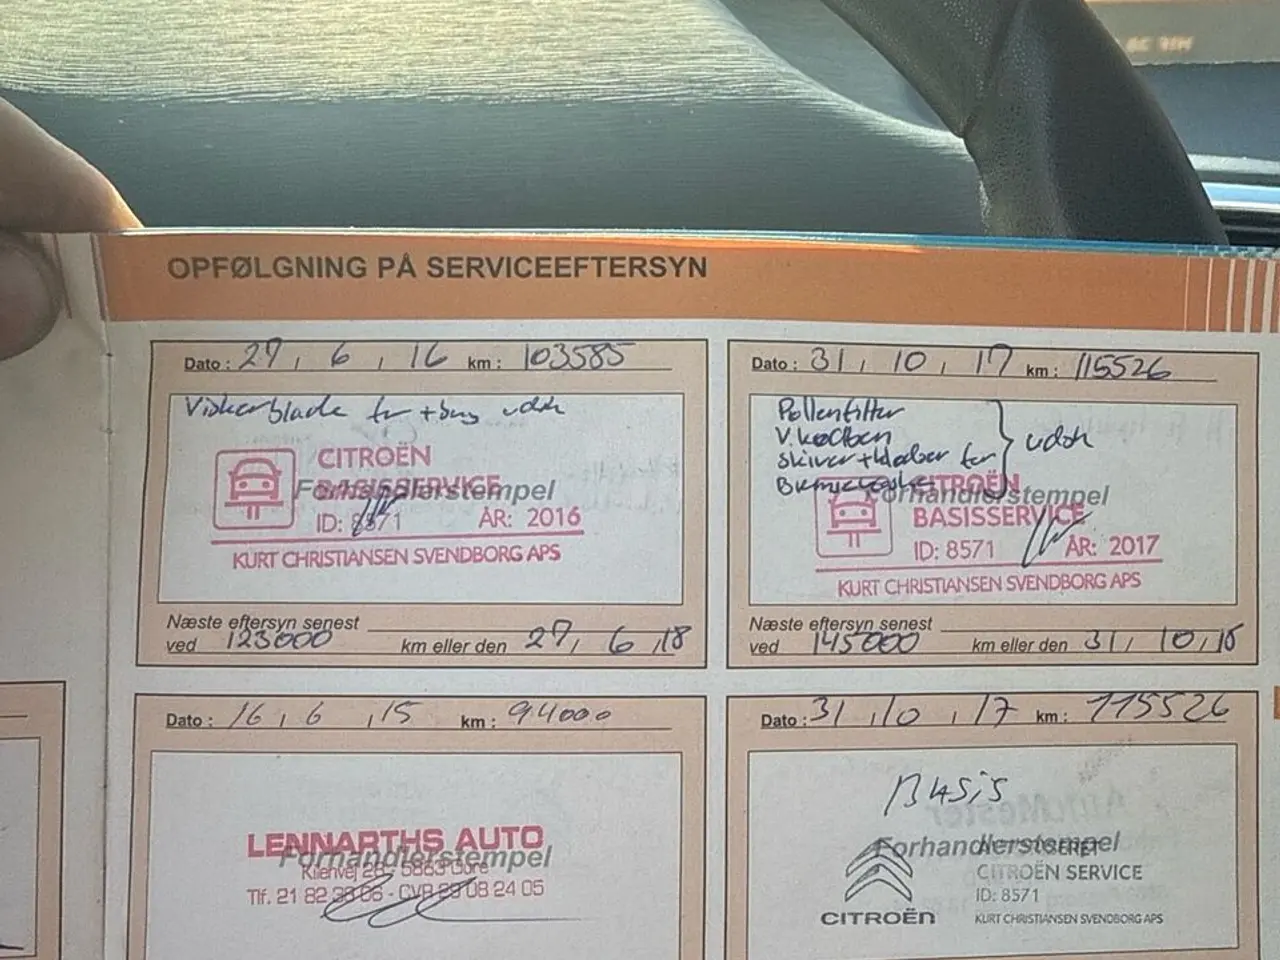 OPFØLGNING PÅ SERVICEEFTERSYN
Dato : 27 , 6 , 16 km : 103585
Viskerblade for + bag udsk
CITROËN
BASISSERVICE
Forhandlerstempel
ID: 8571 ÅR: 2016
KURT CHRISTIANSEN SVENDBORG APS
Næste eftersyn senest
ved 123000 km eller den 27, 6 ,18
Dato : 31 , 10 , 17 km : 115526
Pollenfilter
V. kødben
skiver + klodser for
udsk
CITROËN
Forhandlerstempel
BASISSERVICE
ID: 8571 ÅR: 2017
KURT CHRISTIANSEN SVENDBORG APS
Næste eftersyn senest
ved 145000 km eller den 31, 10, 18
Dato : 16 , 6 , 15 km : 94000
LENNARTHS AUTO
Forhandlerstempel
Tlf. 21 82 38 06 - CVR 29 08 24 05
Dato : 31 , 10 , 17 km : 115526
BASIS
Forhandlerstempel
CITROËN SERVICE
ID: 8571
CITROËN
KURT CHRISTIANSEN SVENDBORG APS